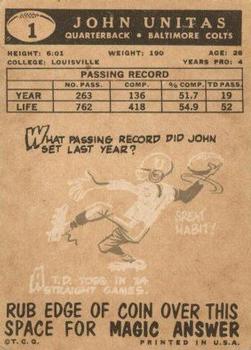 1
JOHN UNITAS
QUARTERBACK • BALTIMORE COLTS
HEIGHT: 6:01 WEIGHT: 190 AGE: 26
COLLEGE: LOUISVILLE YEARS PRO: 4
PASSING RECORD
NO. PASS. COMP. % COMP. TD PASS
YEAR 263 136 51.7 19
LIFE 762 418 54.9 52
WHAT PASSING RECORD DID JOHN
SET LAST YEAR?
GREAT
HABIT!
A T.D. TOSS IN 24
STRAIGHT GAMES.
RUB EDGE OF COIN OVER THIS
SPACE FOR MAGIC ANSWER
©T.C.G. PRINTED IN U.S.A.